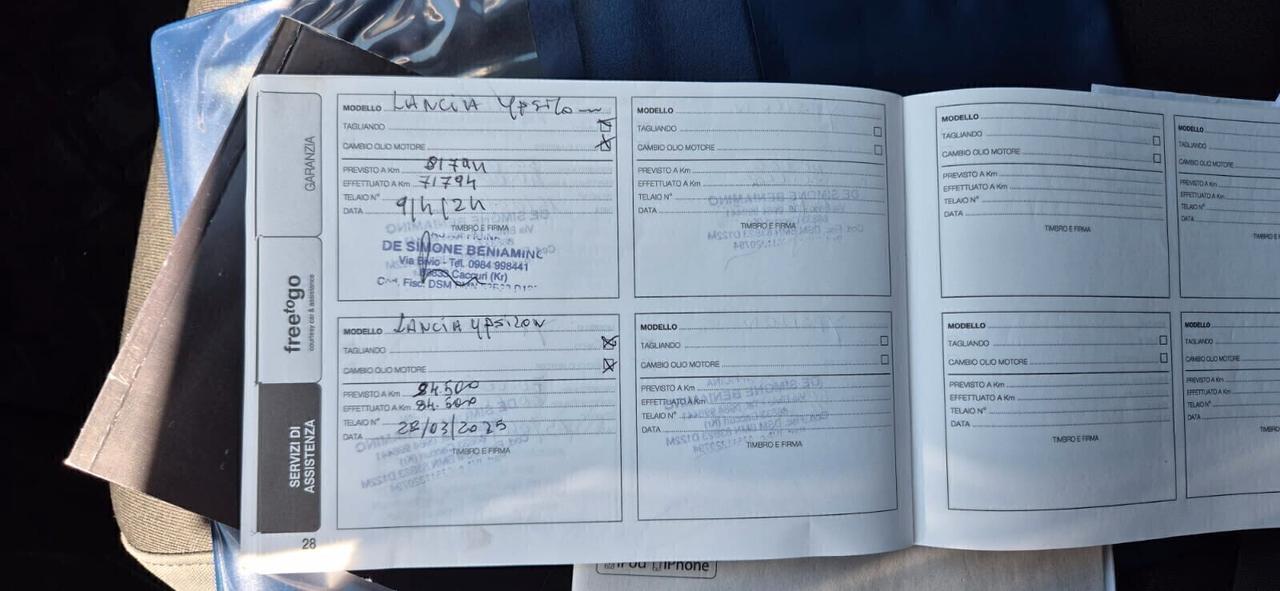 GARANZIA
freetogo
courtesy car & assistance
SERVIZI DI
ASSISTENZA
28
MODELLO LANCIA YPSILON
TAGLIANDO
CAMBIO OLIO MOTORE
PREVISTO A Km 81794
EFFETTUATO A Km 71794
TELAIO N°
DATA 9/4/24
TIMBRO E FIRMA
DE SIMONE BENIAMINO
Via Bivio - Tel. 0984 998441
Caccuri (Kr)
Fisc. DSM
MODELLO LANCIA YPSILON
TAGLIANDO
CAMBIO OLIO MOTORE
PREVISTO A Km 94.500
EFFETTUATO A Km 84.500
TELAIO N°
DATA 28/03/2025
TIMBRO E FIRMA
MODELLO
TAGLIANDO
CAMBIO OLIO MOTORE
PREVISTO A Km
EFFETTUATO A Km
TELAIO N°
DATA
TIMBRO E FIRMA
MODELLO
TAGLIANDO
CAMBIO OLIO MOTORE
PREVISTO A Km
EFFETTUATO A Km
TELAIO N°
DATA
TIMBRO E FIRMA
MODELLO
TAGLIANDO
CAMBIO OLIO MOTORE
PREVISTO A Km
EFFETTUATO A Km
TELAIO N°
DATA
TIMBRO E FIRMA
MODELLO
TAGLIANDO
CAMBIO OLIO MOTORE
PREVISTO A Km
EFFETTUATO A Km
TELAIO N°
DATA
TIMBRO E FIRMA
MODELLO
TAGLIANDO
CAMBIO OLIO MOTORE
PREVISTO A Km
EFFETTUATO A Km
TELAIO N°
DATA
MODELLO
TAGLIANDO
CAMBIO OLIO MOTORE
PREVISTO A Km
EFFETTUATO A Km
TELAIO N°
DATA
iPod iPhone